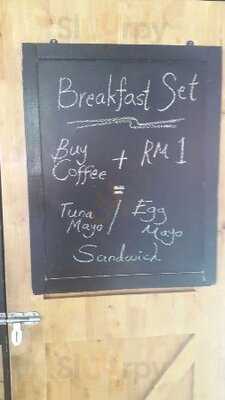 Breakfast Set
Buy Coffee + RM 1
=
Tuna Mayo / Egg Mayo
Sandwich